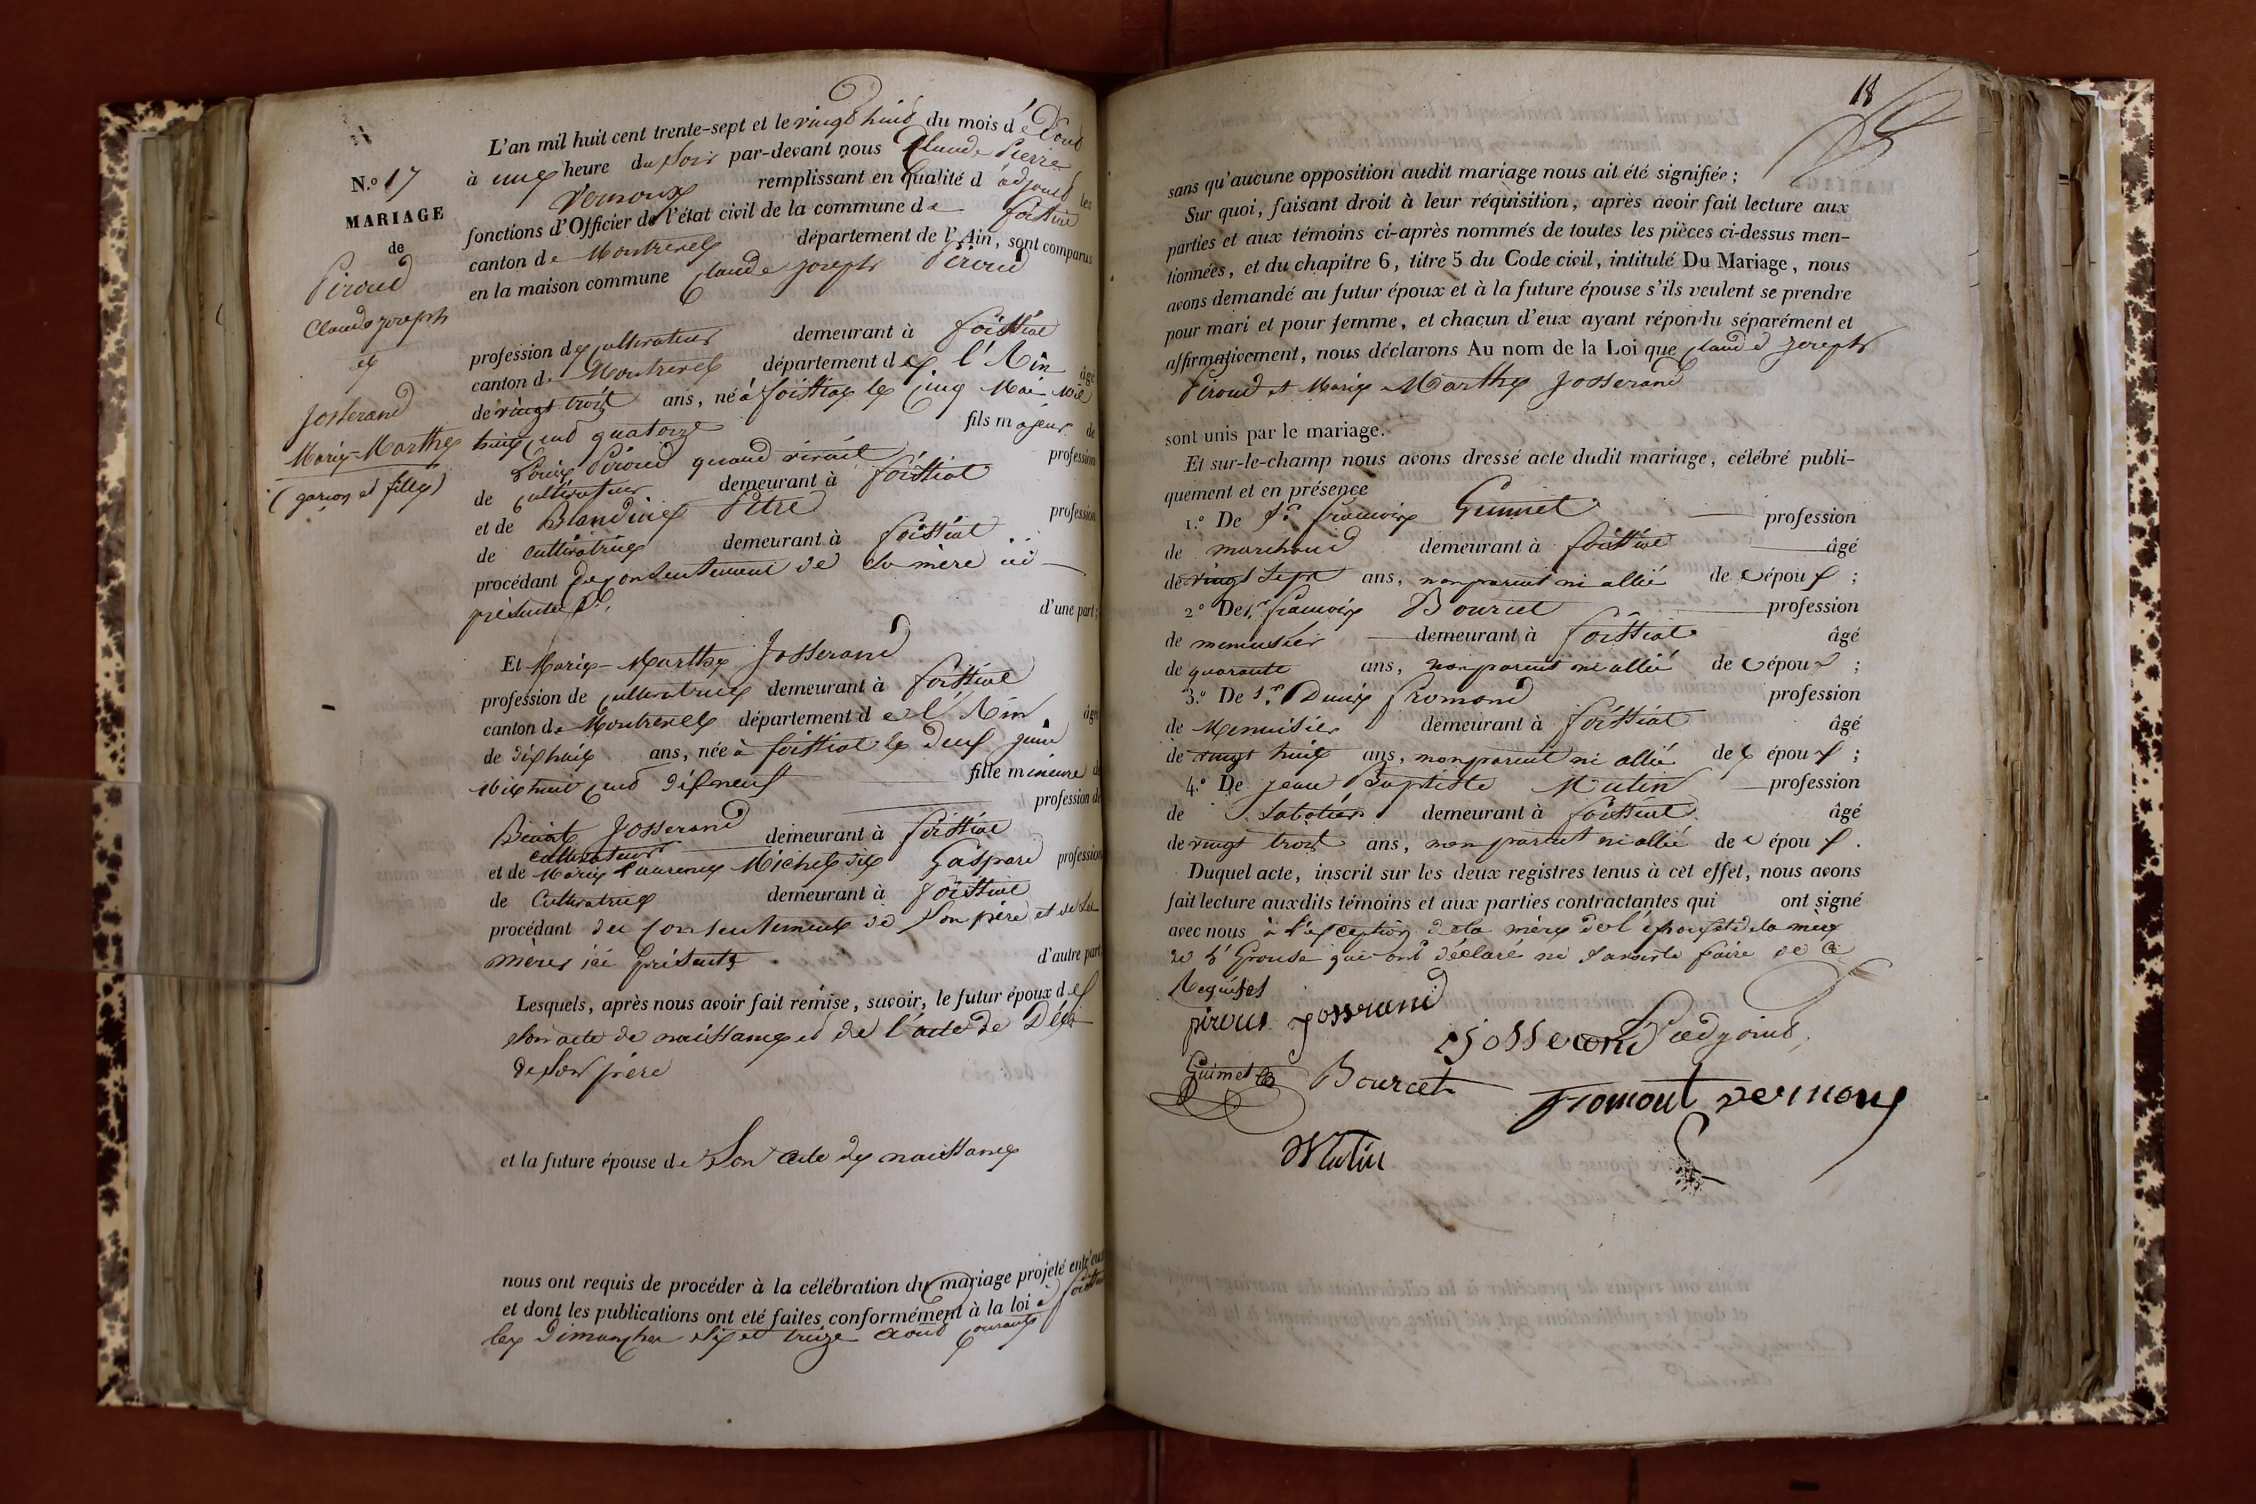 N.o 17
MARIAGE
de
Piroud
Claude joseph
et
Josserand
Marie-Marthe
(garçon et fille)
L'an mil huit cent trente-sept et le vingt huit du mois d'Aout
à une heure du soir par-devant nous Claude Pierre
Vernoux remplissant en qualité d'adjoint les
fonctions d'Officier de l'état civil de la commune de foissiat
canton de Montrevel département de l'Ain, sont comparus
en la maison commune Claude joseph Piroud
profession de cultivateur demeurant à foissiat
canton de Montrevel département de l'Ain âgé
de vingt trois ans, né à foissiat le cinq Mai mil
huit cent quatorze fils majeur de
Louis Piroud quand vivait profession
de cultivateur demeurant à foissiat
et de Blandine Pitre profession
de cultivatrice demeurant à foissiat
procédant du consentement de sa mère ici
présente d'une part;
Et Marie-Marthe Josserand
profession de cultivatrice demeurant à foissiat
canton de Montrevel département de l'Ain âgée
de dix huit ans, née à foissiat le deux juin
mil huit cent dix neuf fille mineure de
profession de
Benoit Josserand demeurant à foissiat
cultivateur
et de Marie Laurence Michel dit Gaspard profession
de Cultivatrice demeurant à foissiat
procédant du consentement de son père et de sa
mère ici présents d'autre part
Lesquels, après nous avoir fait remise, savoir, le futur époux de
son acte de naissance et de l'acte de Décès
de son père
et la future épouse de son acte de naissance
nous ont requis de procéder à la célébration du mariage projeté entr'eux
et dont les publications ont été faites conformément à la loi à foissiat
les Dimanches six et treize aout courant
18
sans qu'aucune opposition audit mariage nous ait été signifiée;
Sur quoi, faisant droit à leur réquisition, après avoir fait lecture aux
parties et aux témoins ci-après nommés de toutes les pièces ci-dessus men-
tionnées, et du chapitre 6, titre 5 du Code civil, intitulé Du Mariage, nous
avons demandé au futur époux et à la future épouse s'ils veulent se prendre
pour mari et pour femme, et chacun d'eux ayant répondu séparément et
affirmativement, nous déclarons Au nom de la Loi que Claude joseph
Piroud et Marie Marthe Josserand
sont unis par le mariage.
Et sur-le-champ nous avons dressé acte dudit mariage, célébré publi-
quement et en présence
1.o De Sr. françois Guimet profession
de marchand demeurant à foissiat âgé
de vingt sept ans, non parent ni allié de l'époux;
2.o De Sr. françois Bourcet profession
de menuisier demeurant à foissiat âgé
de quarante ans, non parent ni allié de l'époux;
3.o De Sr. Denis fromond profession
de Menuisier demeurant à foissiat âgé
de vingt huit ans, non parent ni allié de l'époux;
4.o De jean Baptiste Mutin profession
de Sabotier demeurant à foissiat âgé
de vingt trois ans, non parent ni allié de l'époux.
Duquel acte, inscrit sur les deux registres tenus à cet effet, nous avons
fait lecture auxdits témoins et aux parties contractantes qui ont signé
avec nous à l'exception de la mère de l'époux et de la mère
de l'épouse qui ont déclaré ne savoir le faire de ce
Requises
piroud josserand
Josserand L'adjoint,
Guimet Bourcet
fromont vernoux
Mutin